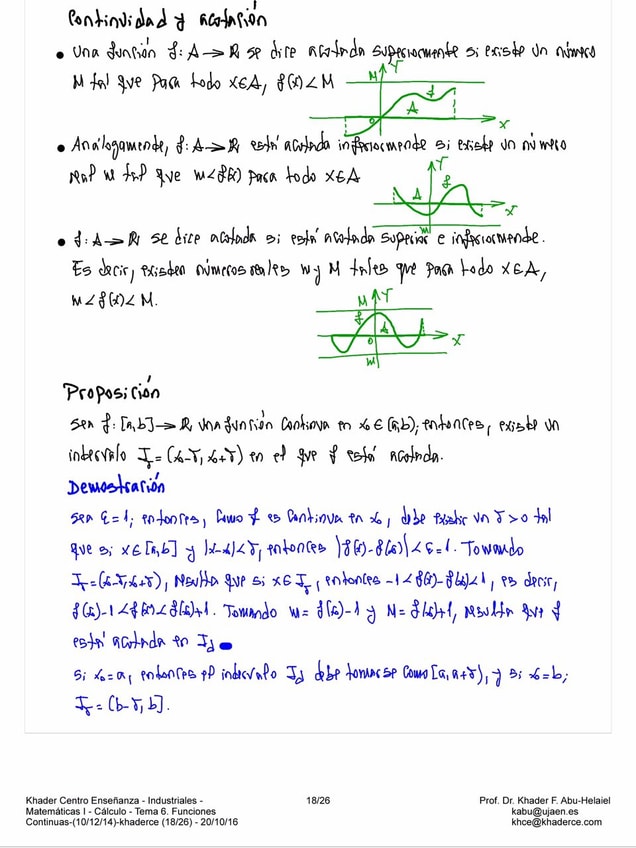 Continuidad y acotación
• Una función f: A → R se dice acotada superiormente si existe un número
M tal que para todo x∈A, f(x) < M
M Y
f
A
0
X
• Análogamente, f: A → R está acotada inferiormente si existe un número
real m tal que m < f(x) para todo x∈A
Y
A
f
X
m
• f: A → R se dice acotada si está acotada superior e inferiormente.
Es decir, existen números reales m y M tales que para todo x∈A,
m < f(x) < M.
M Y
f
A
0
X
m
Proposición
Sea f: [a,b] → R una función continua en x₀ ∈ [a,b]; entonces, existe un
intervalo I_δ = (x₀-δ, x₀+δ) en el que f está acotada.
Demostración
Sea ε = 1; entonces, como f es continua en x₀, debe existir un δ > 0 tal
que si x∈[a,b] y |x-x₀| < δ, entonces |f(x)-f(x₀)| < ε = 1. Tomando
I_δ = (x₀-δ, x₀+δ), resulta que si x∈I_δ, entonces -1 < f(x)-f(x₀) < 1, es decir,
f(x₀)-1 < f(x) < f(x₀)+1. Tomando m = f(x₀)-1 y M = f(x₀)+1, resulta que f
está acotada en I_d
Si x₀ = a, entonces el intervalo I_d debe tomarse como [a, a+δ), y si x₀ = b;
I_δ = (b-δ, b].
Khader Centro Enseñanza - Industriales -
Matemáticas I - Cálculo - Tema 6. Funciones
Continuas-(10/12/14)-khaderce (18/26) - 20/10/16
18/26
Prof. Dr. Khader F. Abu-Helaiel
kabu@ujaen.es
khce@khaderce.com